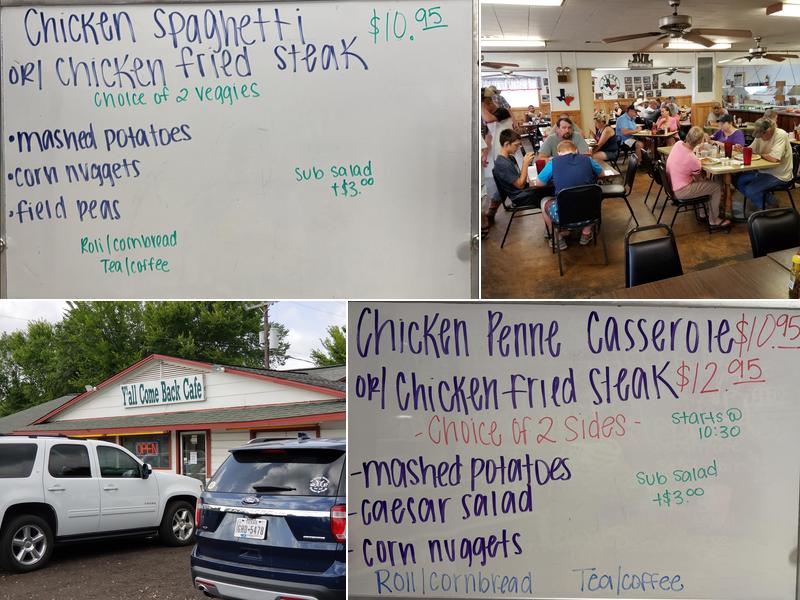 Chicken Spaghetti $10.95
OR/ Chicken fried Steak
Choice of 2 Veggies
•mashed potatoes
•corn nuggets
•field peas
Sub salad
+$3.00
Roll/cornbread
Tea/coffee
Y'all Come Back Cafe
OPEN
TEXAS
GHD-5478
Chicken Penne Casserole $10.95
OR/ Chicken fried Steak $12.95
- Choice of 2 Sides -
Starts @
10:30
-mashed potatoes
-caesar salad
-corn nuggets
Sub salad
+$3.00
Roll/cornbread Tea/coffee